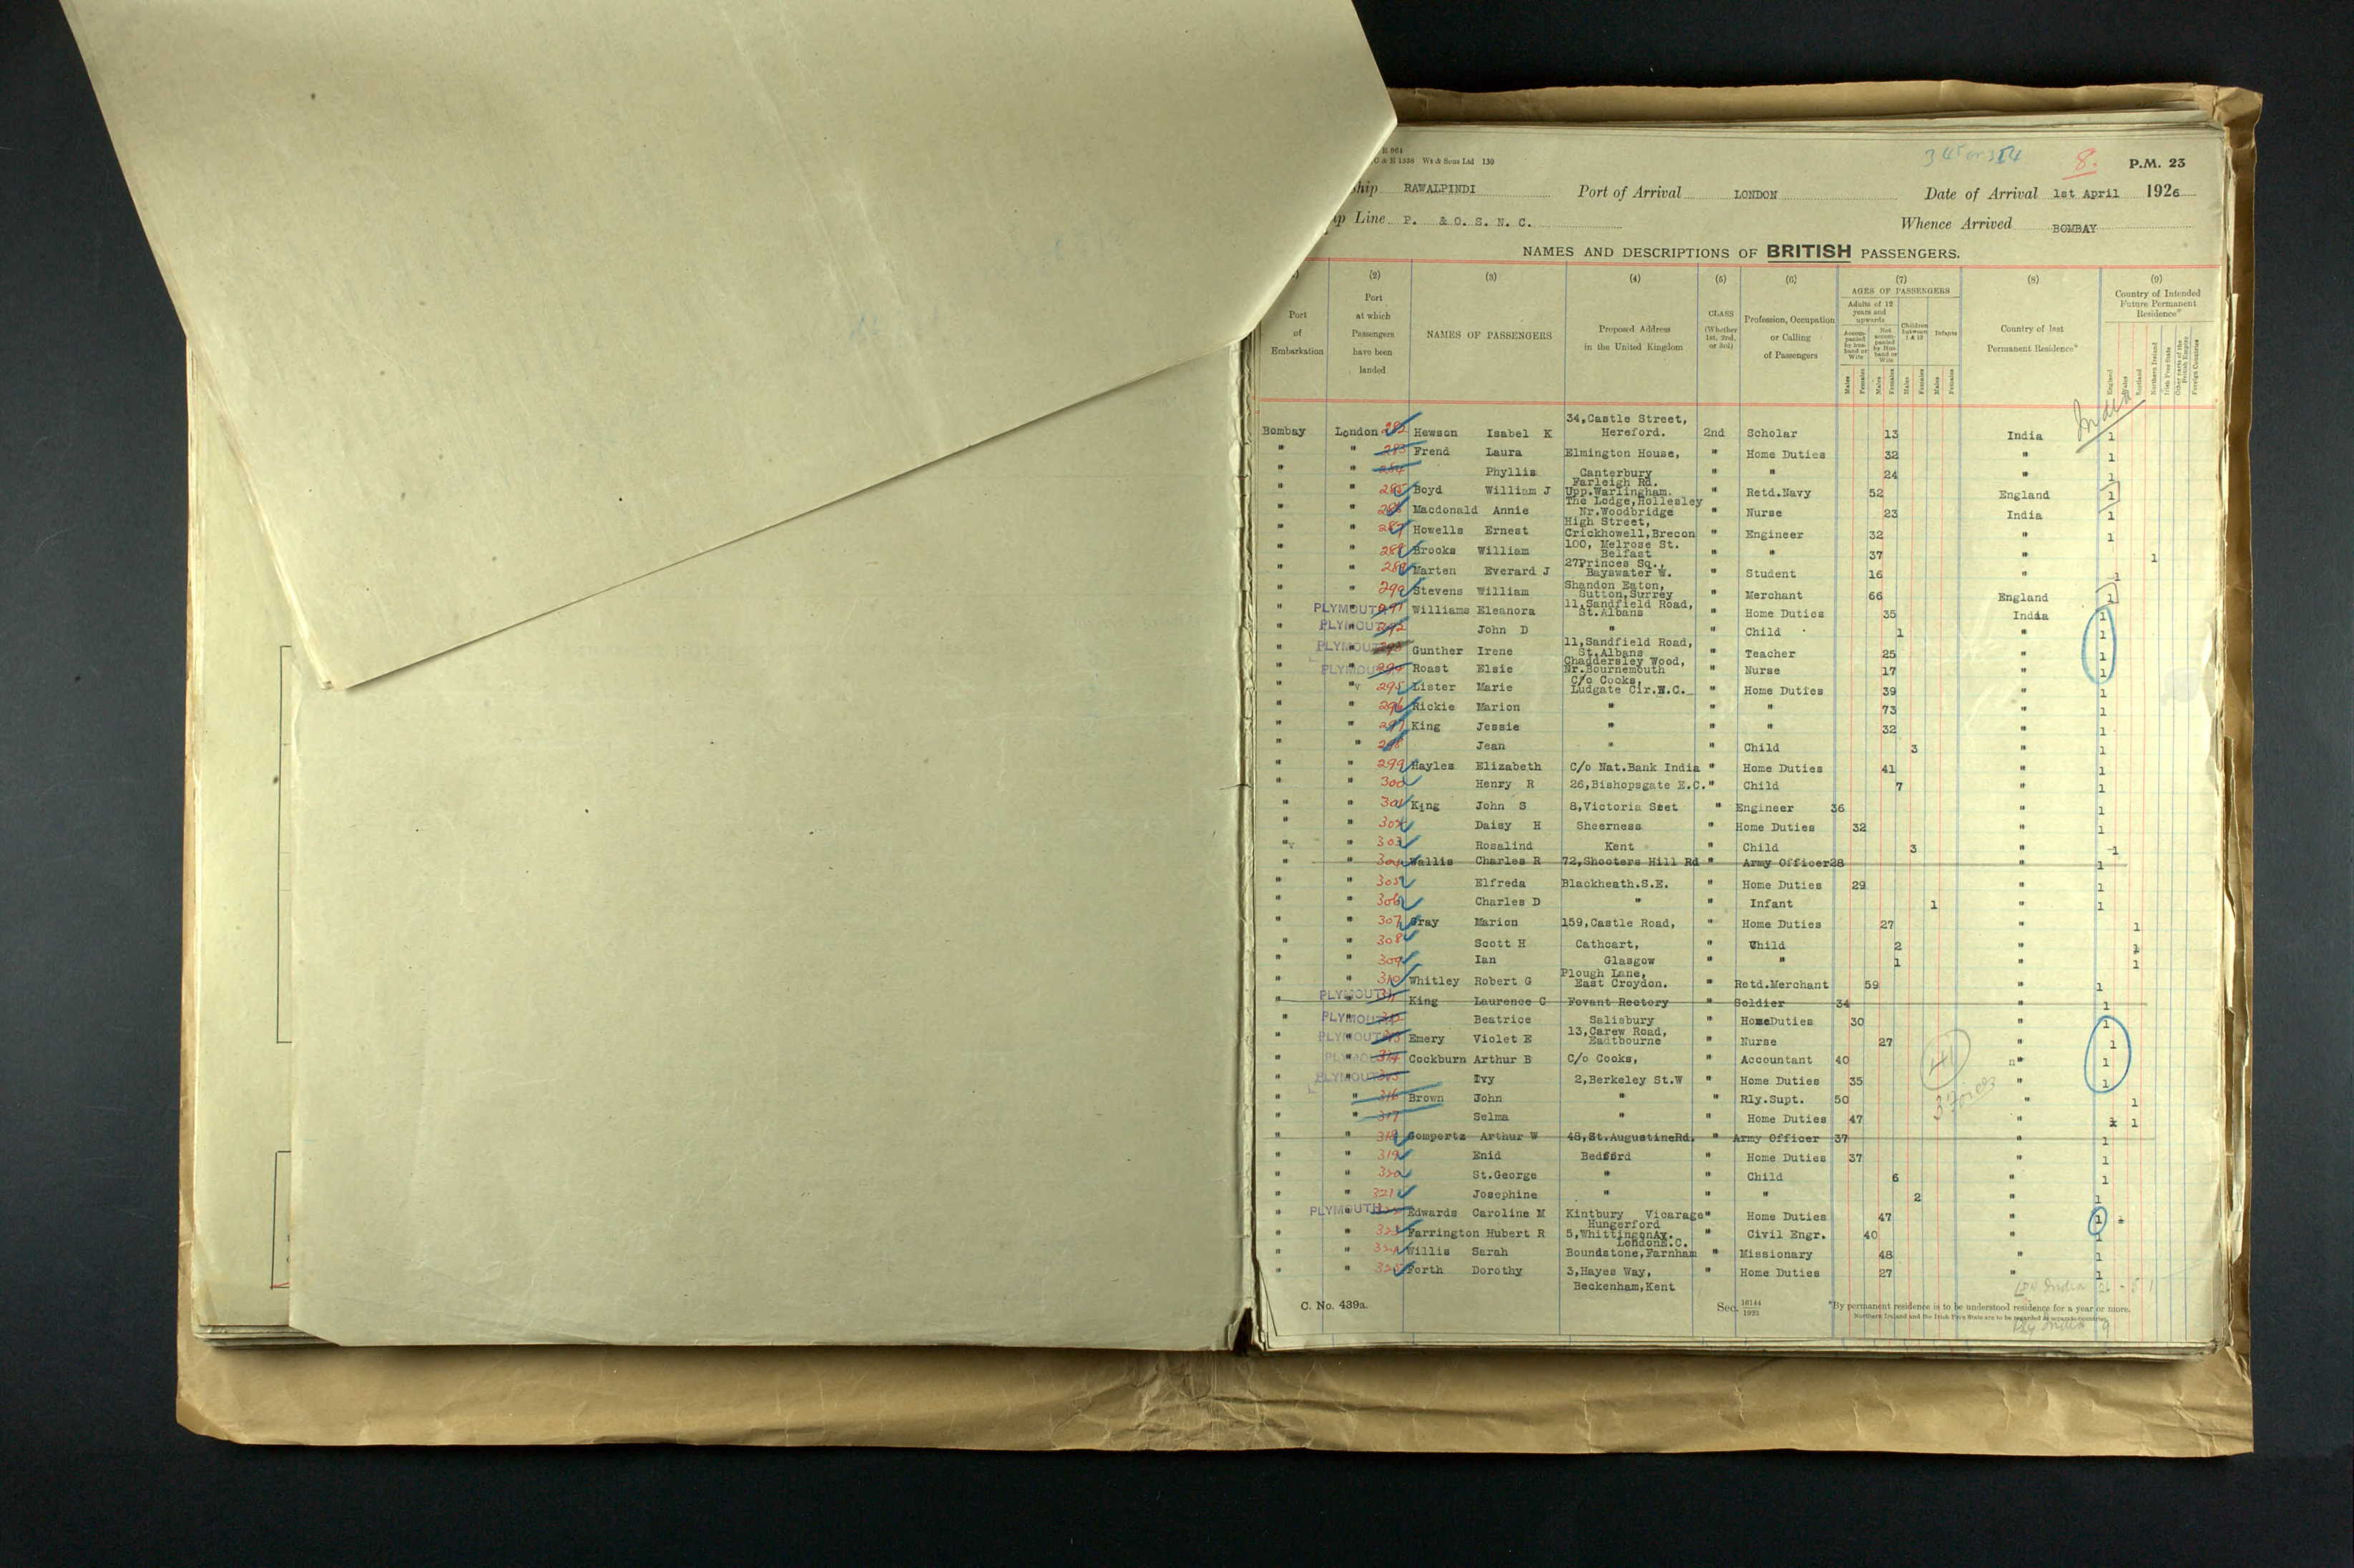 E 961
C & E 1338 Wt & Sons Ltd 130
8.
P.M. 23
hip RAWALPINDI Port of Arrival LONDON Date of Arrival 1st April 1926
p Line P. & O. S. N. C. Whence Arrived BOMBAY
NAMES AND DESCRIPTIONS OF BRITISH PASSENGERS.
(2) (3) (4) (5) (6) (7) (8) (9)
Port of Embarkation
Port at which Passengers have been landed
NAMES OF PASSENGERS
Proposed Address in the United Kingdom
CLASS (Whether 1st, 2nd, or 3rd)
Profession, Occupation or Calling of Passengers
AGES OF PASSENGERS
Adults of 12 years and upwards
Accompanied by husband or Wife
Not accompanied by Husband or Wife
Children between 1 & 12
Infants
Males Females Males Females Males Females Males Females
Country of last Permanent Residence*
Country of Intended Future Permanent Residence*
England Wales Scotland Northern Ireland Irish Free State Other parts of the British Empire Foreign Countries
India
34,Castle Street,
Bombay London 282 Hewson Isabel K Hereford. 2nd Scholar 13 India 1
" " 283 Frend Laura Elmington House, " Home Duties 32 " 1
" " 284 Phyllis Canterbury " " 24 " 1
Farleigh Rd.
" " 285 Boyd William J Upp.Warlingham. " Retd.Navy 52 England 1
The Lodge,Hollesley
" " 286 Macdonald Annie Nr.Woodbridge " Nurse 23 India 1
High Street,
" " 287 Howells Ernest Crickhowell,Brecon " Engineer 32 " 1
100, Melrose St.
" " 288 Brooks William Belfast " " 37 " 1
27Princes Sq.,
" " 289 Marten Everard J Bayswater W. " Student 16 " 1
Shandon Eaton,
" " 290 Stevens William Sutton,Surrey " Merchant 66 England 1
11,Sandfield Road,
" PLYMOUTH 291 Williams Eleanora St.Albans " Home Duties 35 India 1
" PLYMOUTH 292 John D " " Child 1 " 1
11,Sandfield Road,
" PLYMOUTH 293 Gunther Irene St.Albans " Teacher 25 " 1
Chaddersley Wood,
" PLYMOUTH 294 Roast Elsie Nr.Bournemouth " Nurse 17 " 1
C/o Cooks,
" " 295 Lister Marie Ludgate Cir.E.C. " Home Duties 39 " 1
" " 296 Rickie Marion " " " 73 " 1
" " 297 King Jessie " " " 32 " 1
" " 298 Jean " " Child 3 " 1
" " 299 Hayles Elizabeth C/o Nat.Bank India " Home Duties 41 " 1
" " 300 Henry R 26,Bishopsgate E.C. " Child 7 " 1
" " 301 King John S 8,Victoria Seet " Engineer 36 " 1
" " 302 Daisy H Sheerness " Home Duties 32 " 1
" " 303 Rosalind Kent " Child 3 " 1
" " 304 Wallis Charles R 72,Shooters Hill Rd " Army Officer 28 " 1
" " 305 Elfreda Blackheath.S.E. " Home Duties 29 " 1
" " 306 Charles D " " Infant 1 " 1
" " 307 Gray Marion 159,Castle Road, " Home Duties 27 " 1
" " 308 Scott H Cathcart, " Child 2 " 1
" " 309 Ian Glasgow " " 1 " 1
Plough Lane,
" " 310 Whitley Robert G East Croydon. " Retd.Merchant 59 " 1
" PLYMOUTH 311 King Laurence C Fovant Rectory " Soldier 34 " 1
" PLYMOUTH 312 Beatrice Salisbury " HomeDuties 30 " 1
13,Carew Road,
" PLYMOUTH 313 Emery Violet E Eadtbourne " Nurse 27 " 1
" PLYMOUTH 314 Cockburn Arthur B C/o Cooks, " Accountant 40 " 1
" PLYMOUTH 315 Ivy 2,Berkeley St.W " Home Duties 35 " 1
" " 316 Brown John " " Rly.Supt. 50 " 1
" " 317 Selma " " Home Duties 47 " 1
" " 318 Gompertz Arthur W 48,St.AugustineRd. " Army Officer 37 " 1
" " 319 Enid Bedford " Home Duties 37 " 1
" " 320 St.George " " Child 6 " 1
" " 321 Josephine " " " 2 " 1
" PLYMOUTH 322 Edwards Caroline M Kintbury Vicarage " Home Duties 47 " 1
Hungerford
" " 323 Farrington Hubert R 5,WhittingonAv. " Civil Engr. 40 " 1
LondonE.C.
" " 324 Willis Sarah Boundstone,Farnham " Missionary 48 " 1
" " 325 Forth Dorothy 3,Hayes Way, " Home Duties 27 " 1
Beckenham,Kent
C. No. 439a.
Sec. 16144/1925
*By permanent residence is to be understood residence for a year or more.
Northern Ireland and the Irish Free State are to be regarded as separate countries.